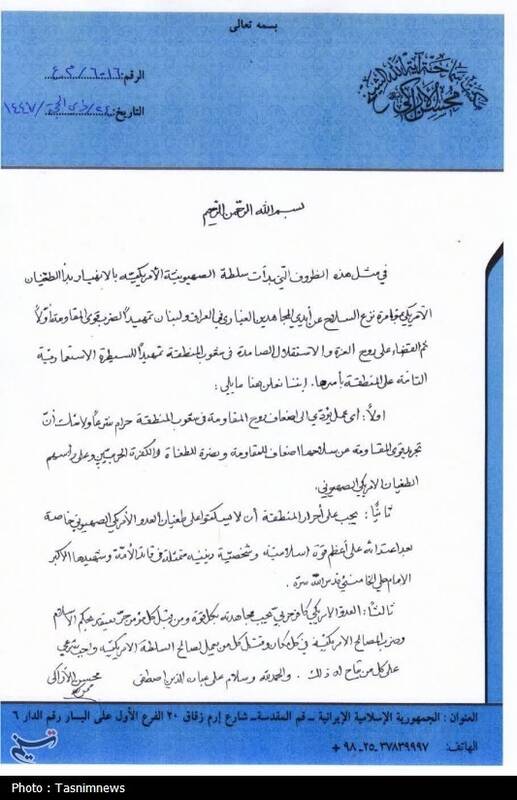 بسمه تعالى
مكتب سماحة آية الله الشيخ
محسن الأراكي
الرقم: ٦-١٦ / م ع
التاريخ: ٢٤ / ذي الحجة / ١٤٤٧
بسم الله الرحمن الرحيم
في مثل هذه الظروف التي بدأت سلطة الصهيونية الأمريكية بالانهيار بدأ الطغيان
الأمريكي مؤامرة نزع السلاح عن أيدي المجاهدين الغيارى في العراق ولبنان تمهيداً لضرب قوى المقاومة أولاً
ثم القضاء على روح العزة والاستقلال الصامدة في شعوب المنطقة تمهيداً للسيطرة الاستعمارية
التامة على المنطقة بأسرها. إننا نعلن هنا ما يلي:
أولاً: أي عمل يؤدي الى إضعاف روح المقاومة في شعوب المنطقة حرام شرعاً ولا شك أنّ
تجريد قوى المقاومة عن سلاحها اضعاف للمقاومة ونصرة للطغاة والكفرة الحربيين وعلى رأسهم
الطغيان الامريكي الصهيوني.
ثانياً: يجب على أحرار المنطقة أن لا يسكتوا على طغيان العدو الأمريكي الصهيوني خاصة
بعد اعتدائه على أعظم قوة إسلامية وشخصية دينية متمثلة في قائد الأمة وشهيدها الأكبر
الامام علي الخامنئي قدس الله سره.
ثالثاً: العدو الامريكي كافر حربي يجب مجاهدته بكل قوة ومن قبل كل مؤمن حرّ
وضرب المصالح الامريكية في كل مكان وقتل كل من يعمل لصالح السلطة الامريكية واجب شرعي
على كل من يتاح له ذلك. والحمد لله وسلام على عباده الذين اصطفى
محسن الأراكي
العنوان : الجمهورية الإسلامية الإيرانية – قم المقدسة – شارع إرم زقاق ٢٠ الفرع الأول على اليسار رقم الدار ٦
الهاتف: ٣٧٨٣٩٩٩٧-٢٥-٩٨ +
تسنیم
Photo : Tasnimnews